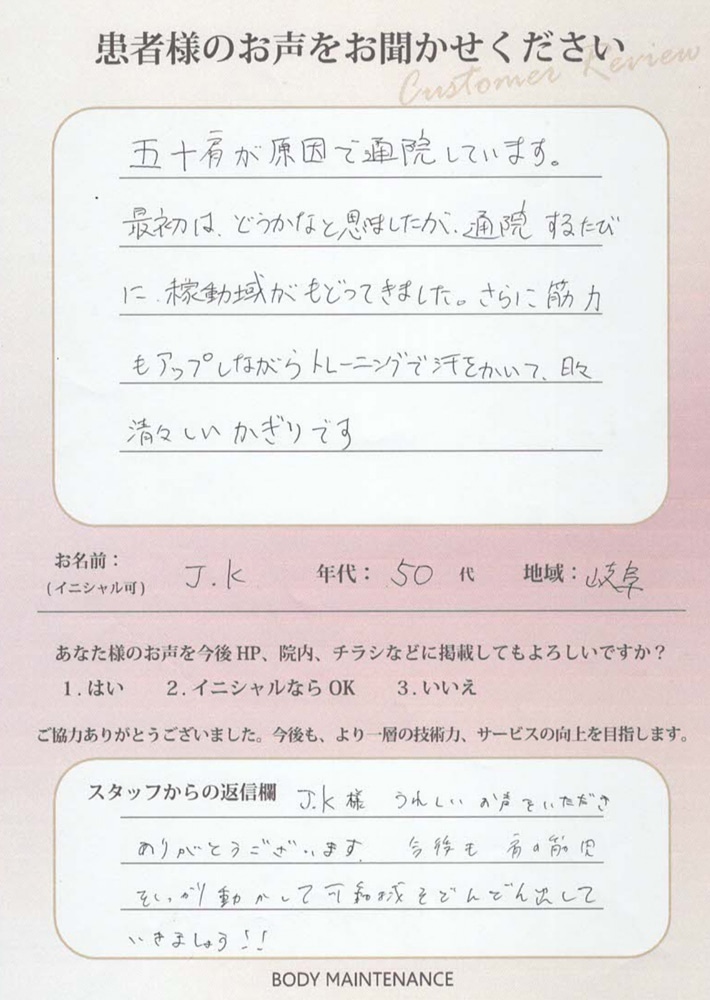 患者様のお声をお聞かせください
Customer Review
五十肩が原因で通院しています。
最初は、どうかなと思いましたが、通院するたび
に、稼動域がもどってきました。さらに筋力
もアップしながらトレーニングで汗をかいて、日々
清々しいかぎりです
お名前：
(イニシャル可) J.K 年代：50代 地域：岐阜
あなた様のお声を今後HP、院内、チラシなどに掲載してもよろしいですか？
1.はい 2.イニシャルならOK 3.いいえ
ご協力ありがとうございました。今後も、より一層の技術力、サービスの向上を目指します。
スタッフからの返信欄 J.K様 うれしいお声をいただき
ありがとうございます。 今後も 肩の筋肉
をしっかり動かして可動域をどんどん出して
いきましょう!!
BODY MAINTENANCE